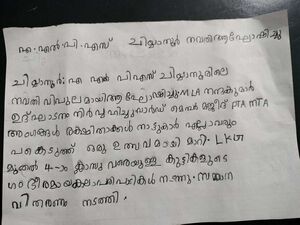 എ.എൽ.പി.എസ് ചിയ്യാനൂർ നവതിആഘോഷിച്ചു
ചിയ്യാനൂർ: എ എൽ പി എസ് ചിയ്യാനൂരിലെ
നവതി വിപുലമായിആഘോഷിച്ചു.MLA നന്ദകുമാർ
ഉദ്ഘാടനം നിർവ്വഹിച്ചു.വാർഡ് മെമ്പർ മജീദ് PTA MTA
അംഗങ്ങൾ രക്ഷിതാക്കൾ നാട്ടുകാർ എല്ലാവരും
പങ്കെടുത്ത് ഒരു ഉത്സവമായി മാറി. LKG
മുതൽ 4-ാം ക്ലാസ്സു വരെയുള്ള കുട്ടികളുടെ
ഗംഭീരമായകലാപരിപാടികൾ നടന്നു. സമ്മാന
വിതരണം നടത്തി.